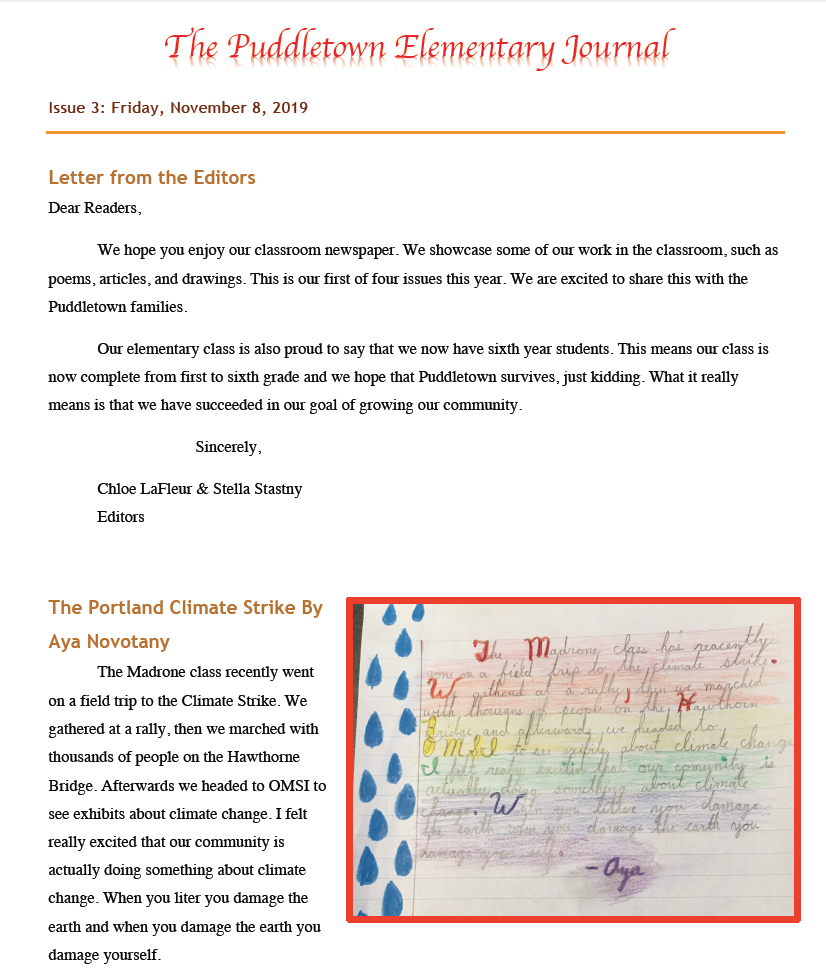 The Puddletown Elementary Journal
Issue 3: Friday, November 8, 2019
Letter from the Editors
Dear Readers,
We hope you enjoy our classroom newspaper. We showcase some of our work in the classroom, such as
poems, articles, and drawings. This is our first of four issues this year. We are excited to share this with the
Puddletown families.
Our elementary class is also proud to say that we now have sixth year students. This means our class is
now complete from first to sixth grade and we hope that Puddletown survives, just kidding. What it really
means is that we have succeeded in our goal of growing our community.
Sincerely,
Chloe LaFleur & Stella Stastny
Editors
The Portland Climate Strike By
Aya Novotany
The Madrone class recently went
on a field trip to the Climate Strike. We
gathered at a rally, then we marched with
thousands of people on the Hawthorne
Bridge. Afterwards we headed to OMSI to
see exhibits about climate change. I felt
really excited that our community is
actually doing something about climate
change. When you liter you damage the
earth and when you damage the earth you
damage yourself.
The Madrone class has reacently
gone on a field trip to the climate strike.
We gathered at a rally, then we marched
with of people on the Hawthorn
Bridge and afterwards we headed to
OMSI to see about climate change
I felt that our comunity is
actually doing something about climate
change. When you you damage
the earth when you damage the earth you
damage your self.
- Aya